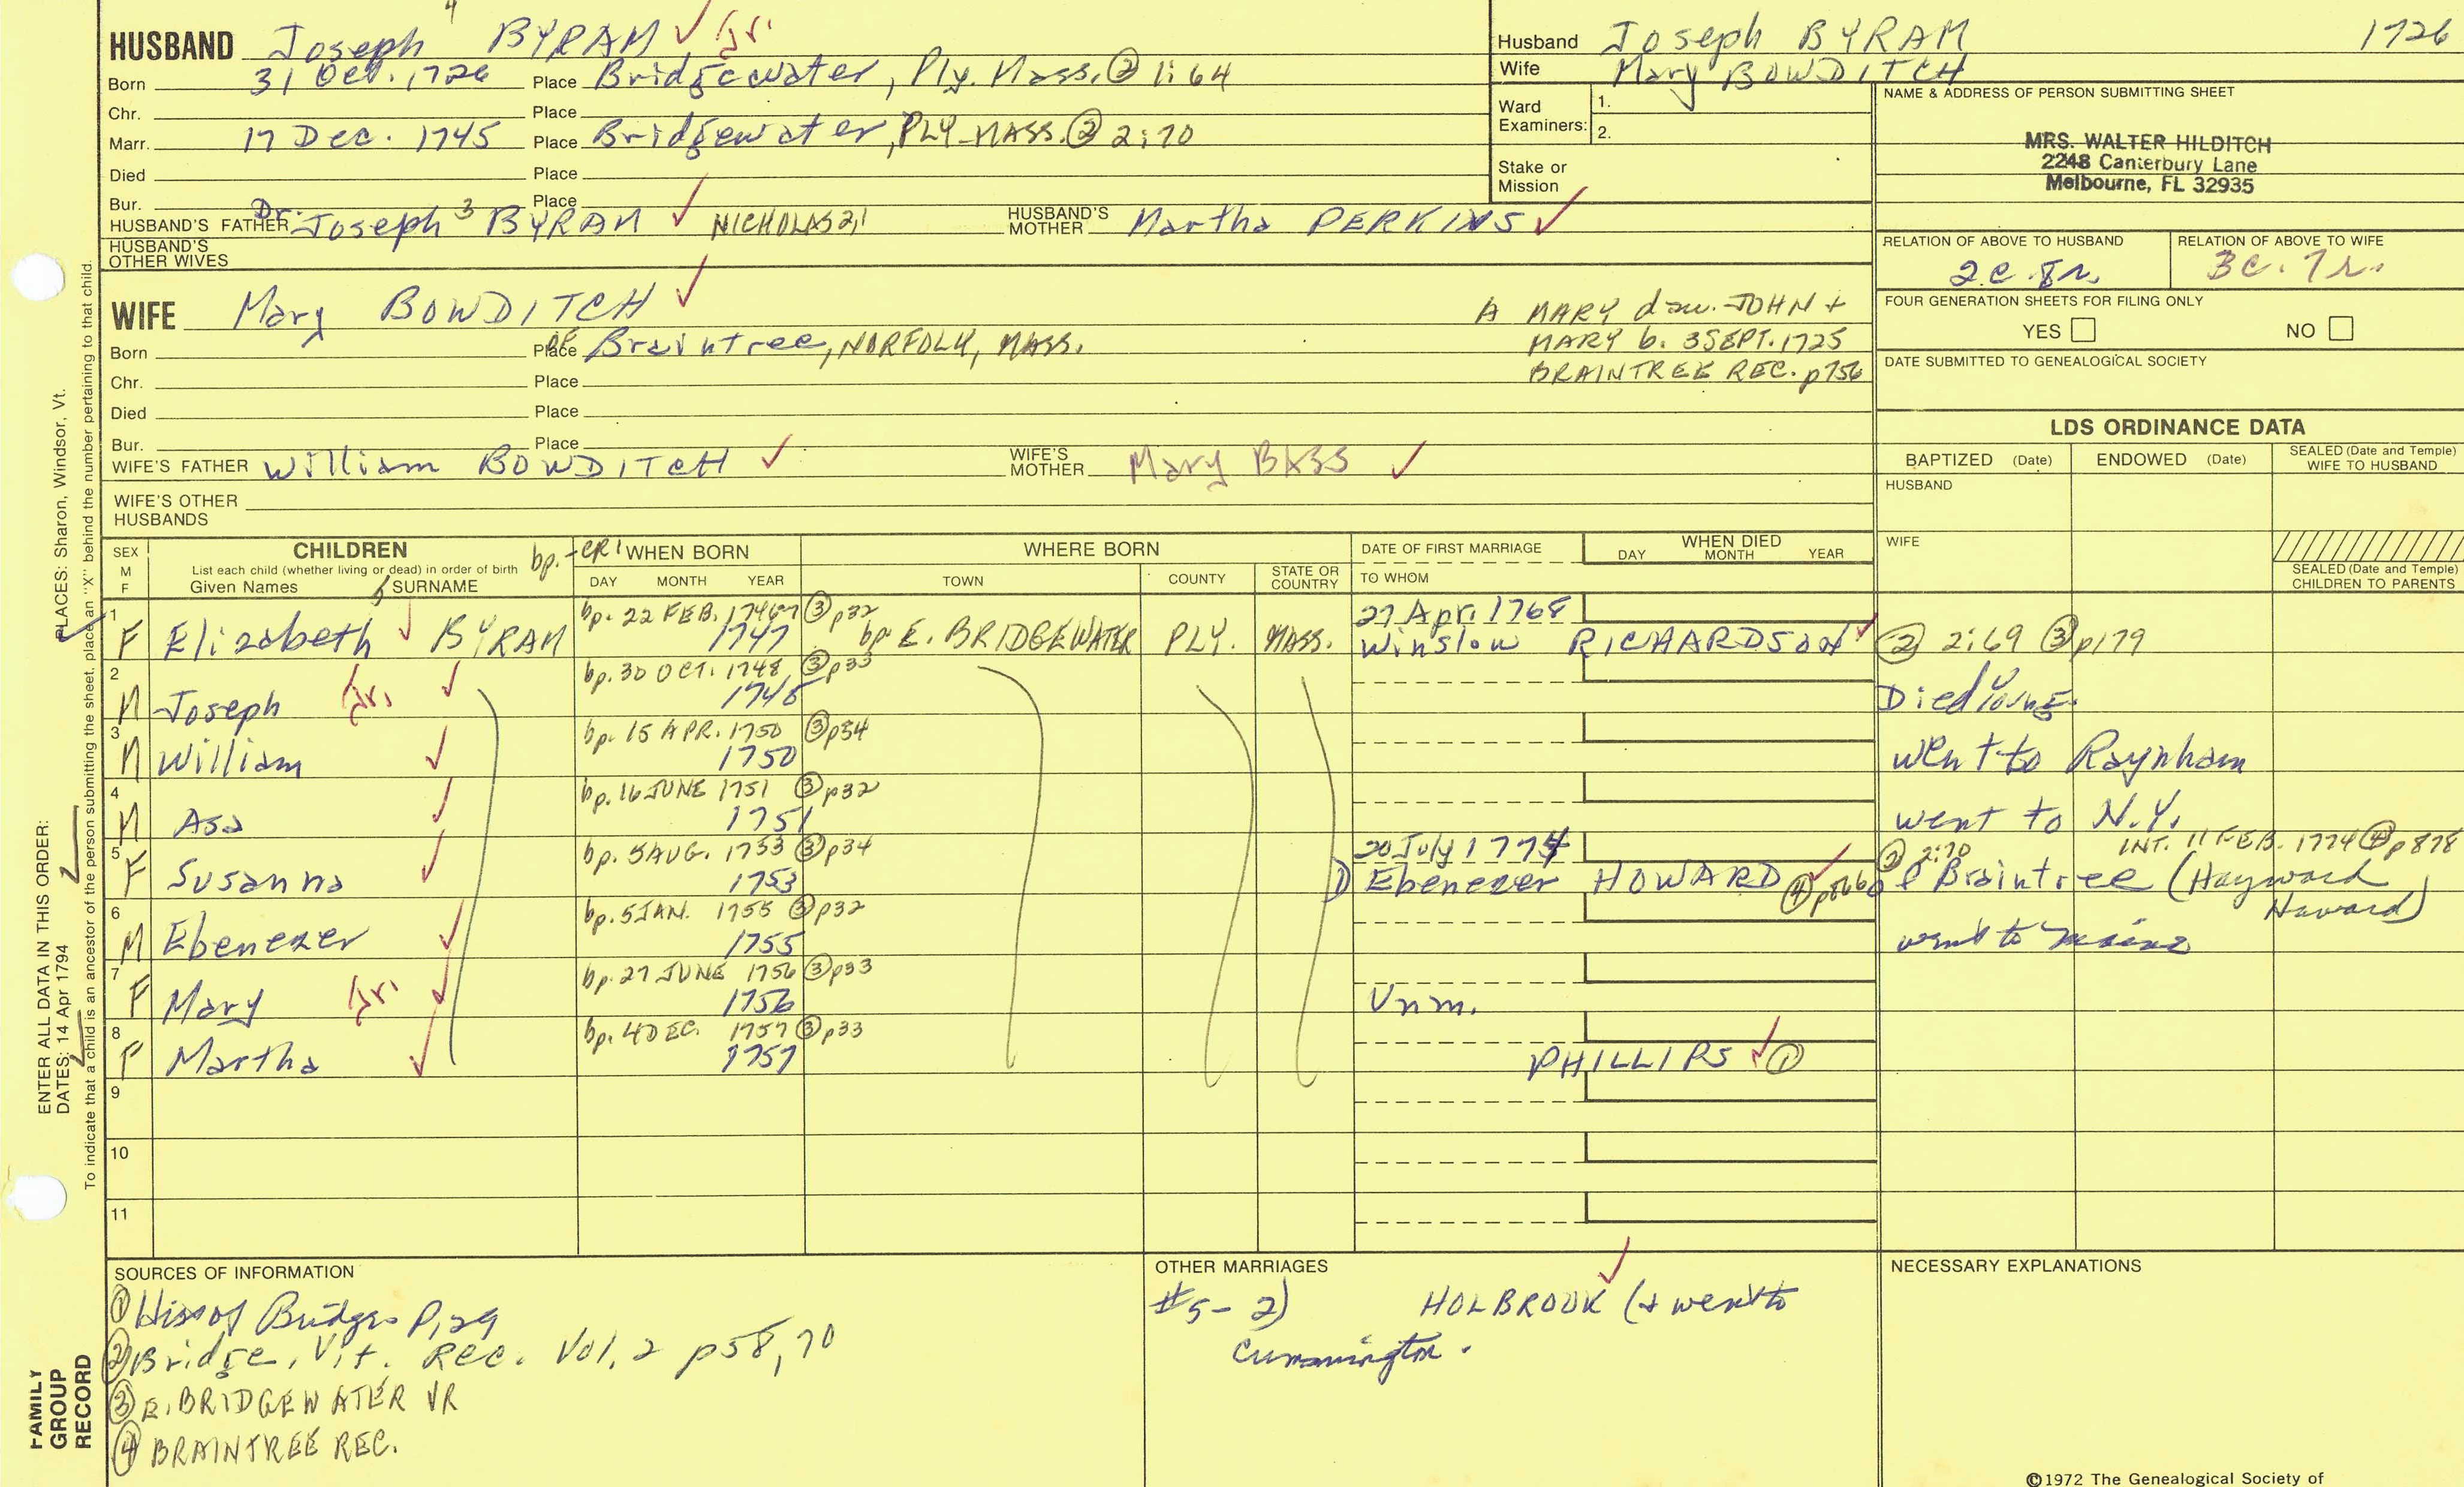 4
HUSBAND Joseph BYRAM ✓ Jr.
Born 31 Oct. 1726 Place Bridgewater, Ply. Mass. ② 1:64
Chr. Place
Marr. 17 Dec. 1745 Place Bridgewater, PLY-MASS. ② 2:70
Died Place
Bur. Place
HUSBAND'S FATHER Dr. Joseph 3 BYRAM ✓ NICHOLAS 2,1 HUSBAND'S MOTHER Martha PERKINS ✓
HUSBAND'S OTHER WIVES
Husband Joseph BYRAM 1726
Wife Mary BOWDITCH
Ward Examiners: 1.
2.
Stake or Mission
NAME & ADDRESS OF PERSON SUBMITTING SHEET
MRS. WALTER HILDITCH
2248 Canterbury Lane
Melbourne, FL 32935
RELATION OF ABOVE TO HUSBAND RELATION OF ABOVE TO WIFE
2c. 8r. 3c. 7r.
FOUR GENERATION SHEETS FOR FILING ONLY
YES NO
DATE SUBMITTED TO GENEALOGICAL SOCIETY
WIFE Mary BOWDITCH ✓
Born Place of Braintree, NORFOLK, MASS.
A MARY dau. JOHN +
MARY b. 3 SEPT. 1725
BRAINTREE REC. p756
Chr. Place
Died Place
Bur. Place
WIFE'S FATHER William BOWDITCH ✓ WIFE'S MOTHER Mary BASS ✓
WIFE'S OTHER HUSBANDS
LDS ORDINANCE DATA
BAPTIZED (Date) ENDOWED (Date) SEALED (Date and Temple) WIFE TO HUSBAND
HUSBAND
WIFE
SEALED (Date and Temple) CHILDREN TO PARENTS
SEX M F CHILDREN bp.-CR1 WHEN BORN WHERE BORN DATE OF FIRST MARRIAGE WHEN DIED
List each child (whether living or dead) in order of birth
Given Names SURNAME DAY MONTH YEAR TOWN COUNTY STATE OR COUNTRY TO WHOM DAY MONTH YEAR
1 bp. 22 FEB. 1746-7 ③ p32 27 Apr. 1768
F Elizabeth ✓ BYRAM 1747 bp. E. BRIDGEWATER PLY. MASS. Winslow RICHARDSON ✓ ② 2:69 ③ p179
2 bp. 30 OCT. 1748 ③ p33
M Joseph Jr. ✓ 1748 Died Young.
3 bp. 15 APR. 1750 ③ p34
M William ✓ 1750 went to Raynham
4 bp. 16 JUNE 1751 ③ p32
M Asa ✓ 1751 went to N.Y.
5 bp. 5 AUG. 1753 ③ p34 20 July 1774 ② 2:70 INT. 11 FEB. 1774 ④ p878
F Susanna ✓ 1753 1) Ebenezer HOWARD ✓ ④ p866 of Braintree (Hayward
Havard)
6 bp. 5 JAN. 1755 ③ p32
M Ebenezer ✓ 1755 went to Maine
7 bp. 27 JUNE 1756 ③ p33
F Mary Jr. ✓ 1756 Unm.
8 bp. 4 DEC. 1757 ③ p33
F Martha ✓ 1757 PHILLIPS ✓ ①
9
10
11
SOURCES OF INFORMATION
① Hist of Bridge. P129
② Bridge. Vit. Rec. Vol. 2 p58, 70
③ E. BRIDGEWATER VR
④ BRAINTREE REC.
OTHER MARRIAGES
#5-2) HOLBROOK ✓ (& went to
Cummington.
NECESSARY EXPLANATIONS
©1972 The Genealogical Society of
ENTER ALL DATA IN THIS ORDER:
PLACES: Sharon, Windsor, Vt.
DATES: 14 Apr 1794
To indicate that a child is an ancestor of the person submitting the sheet, place an "X" behind the number pertaining to that child.
FAMILY
GROUP
RECORD